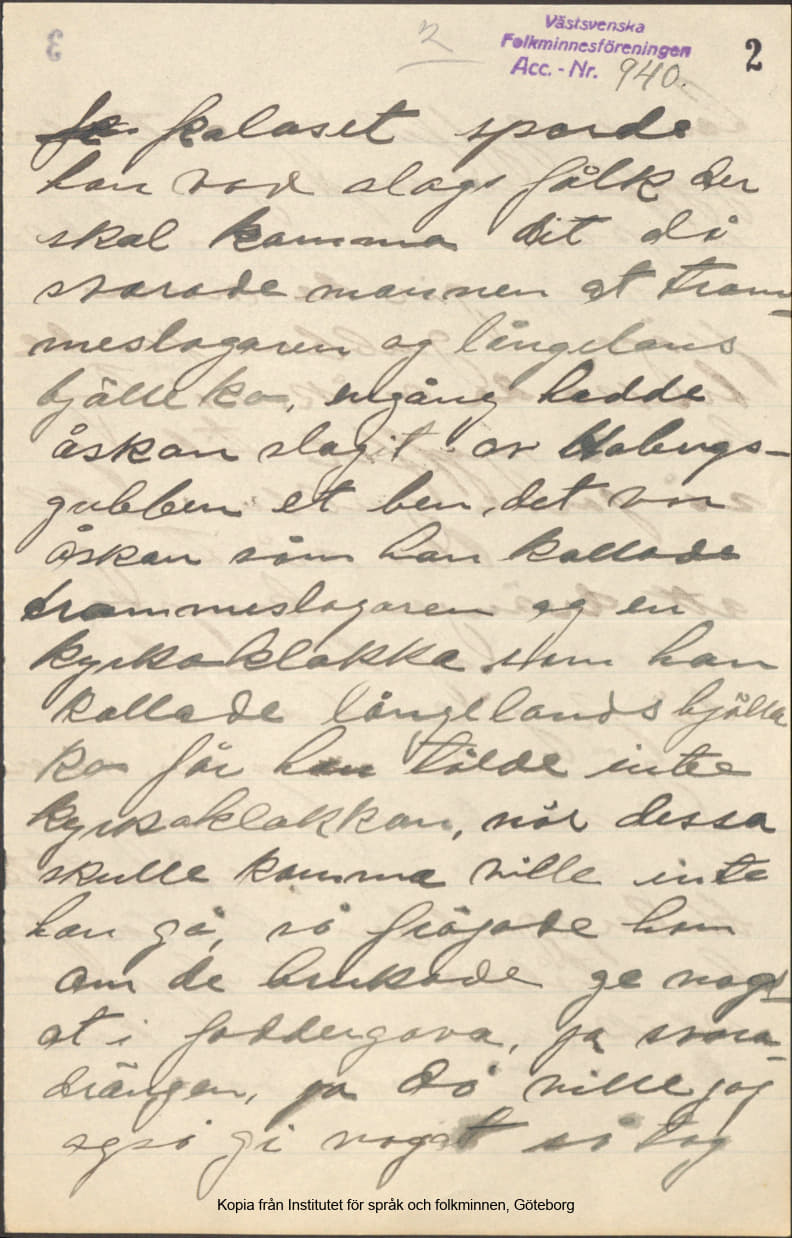 2
Västsvenska
Folkminnesföreningen
Acc. - Nr. 940.
2
kalaset sporde
han vad slags fålk der
skal kamma dit då
svarade mannen at tram-
meslagaren og långelans
bjälle ko, engång hadde
åskan slagit av Hobergs-
gubben et ben, det var
åskan såm han kallade
trammeslagaren og en
kyrkaklakka såm han
kallade långelands bjälla
ko får han tålde inte
kyrkaklakkan, når dessa
skulle kamma ville inte
han gå, så frågade han
am de brukade ge någ-
at i faddergava, ja svara-
drängen, ja då ville jag
også gi nagat så tog
Kopia från Institutet för språk och folkminnen, Göteborg